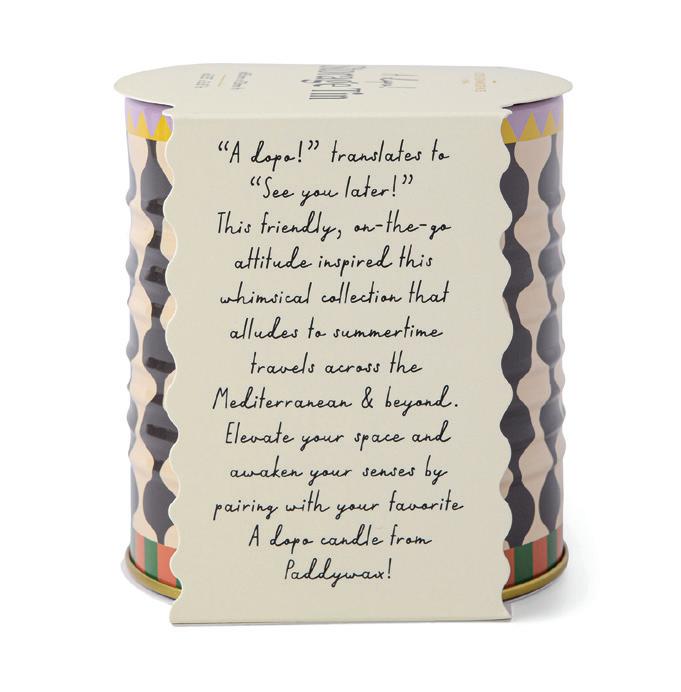 Storage Tin
"A dopo!" translates to
"See you later!"
This friendly, on-the-go
attitude inspired this
whimsical collection that
alludes to summertime
travels across the
Mediterranean & beyond.
Elevate your space and
awaken your senses by
pairing with your favorite
A dopo candle from
Paddywax!